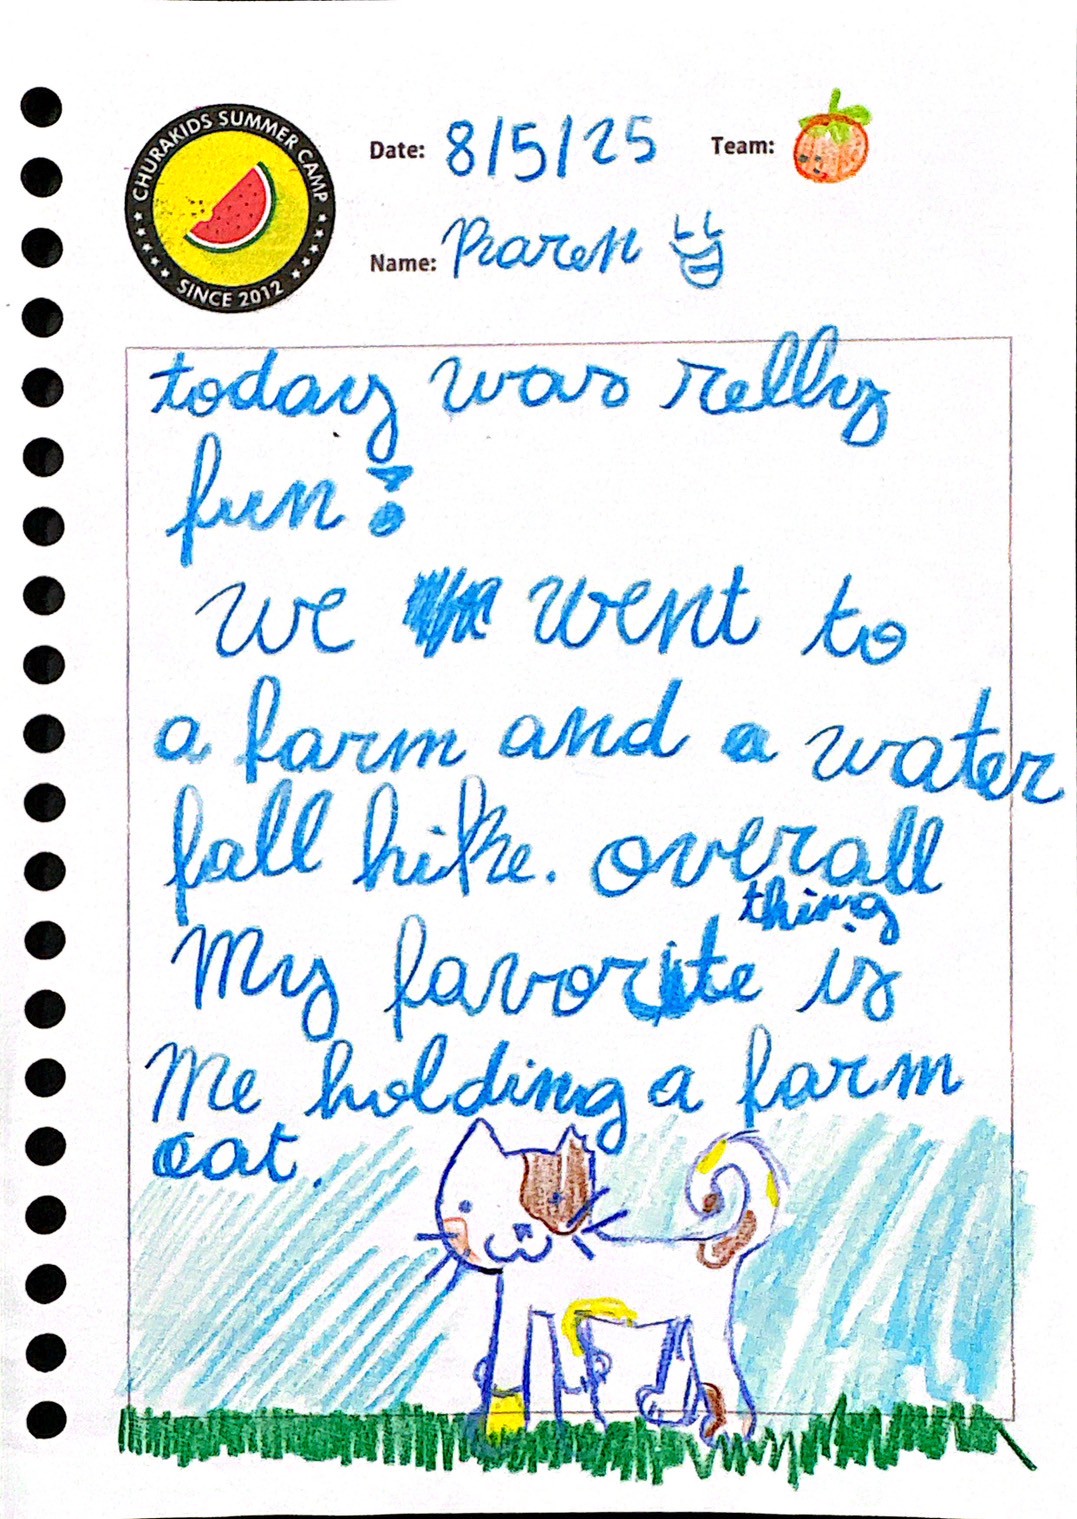 CHURAKIDS SUMMER CAMP
SINCE 2012
Date: 8/5/25
Team:
Name: Karen
today was relly
fun!
we went to
a farm and a water
fall hike. overall
thing
My favorite is
Me holding a farm
cat.